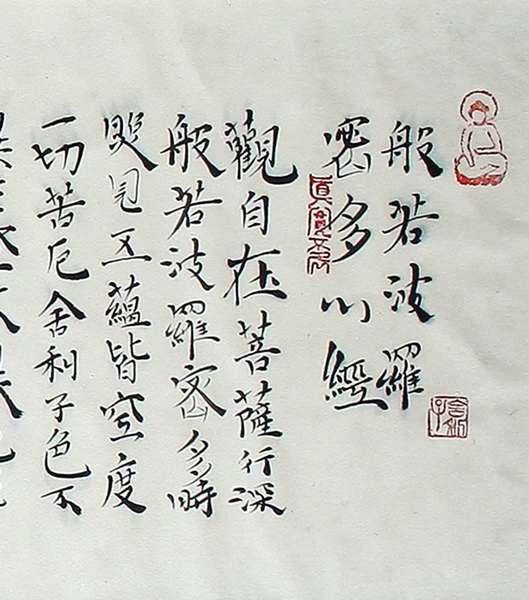 般若波羅
密多心經
真實不虛
觀自在菩薩行深
般若波羅密多時
照見五蘊皆空度
一切苦厄舍利子色不